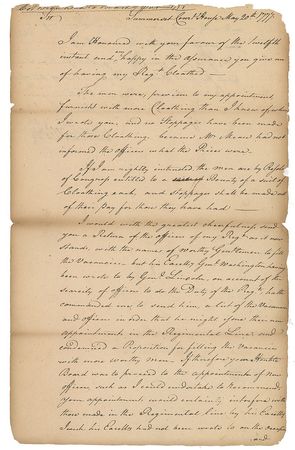 Sir Summerset Court House May 20th 1777.
I am Honoured with your favour of the twelfth
instant and am happy in the assurance you give me
of having my Regt. Cloathed —
The men were, previous to my appointment,
furnish'd with more Cloathing than I knew of when
I wrote you, and no Stoppages have been made
for those Cloathing, because Mr. had not
informed the officers what the Prices were.
If I am rightly instructed the men are by Resolve
of Congress entitled to a Bounty of a suit of
Cloathing each, and Stoppages shall be made out
of their Pay for those they have had —
I would with the greatest chearfulness send
you a Return of the officers of my Regt. as it now
stands, with the names of worthy Gentlemen to fill
the Vacancies, but his Excelly. Genl. Washington having
been wrote to by Genl. Lincoln, on account of the
scarcity of officers to do the Duty of the Regt. hath
commanded me to send him a list of the Vacancies
and officers in order that he might of the new
appointments in the Regimental Line, and
a Proposition for filling the Vacancies
with more worthy men. If therefore your Honble.
Board was to proceed to the appointment of new
officers such as I could undertake to Recommend,
your appointment would certainly interfere with
those made in the Regimental line by his Excelly.
I wish his Excelly. had not been wrote to on the occasion
and